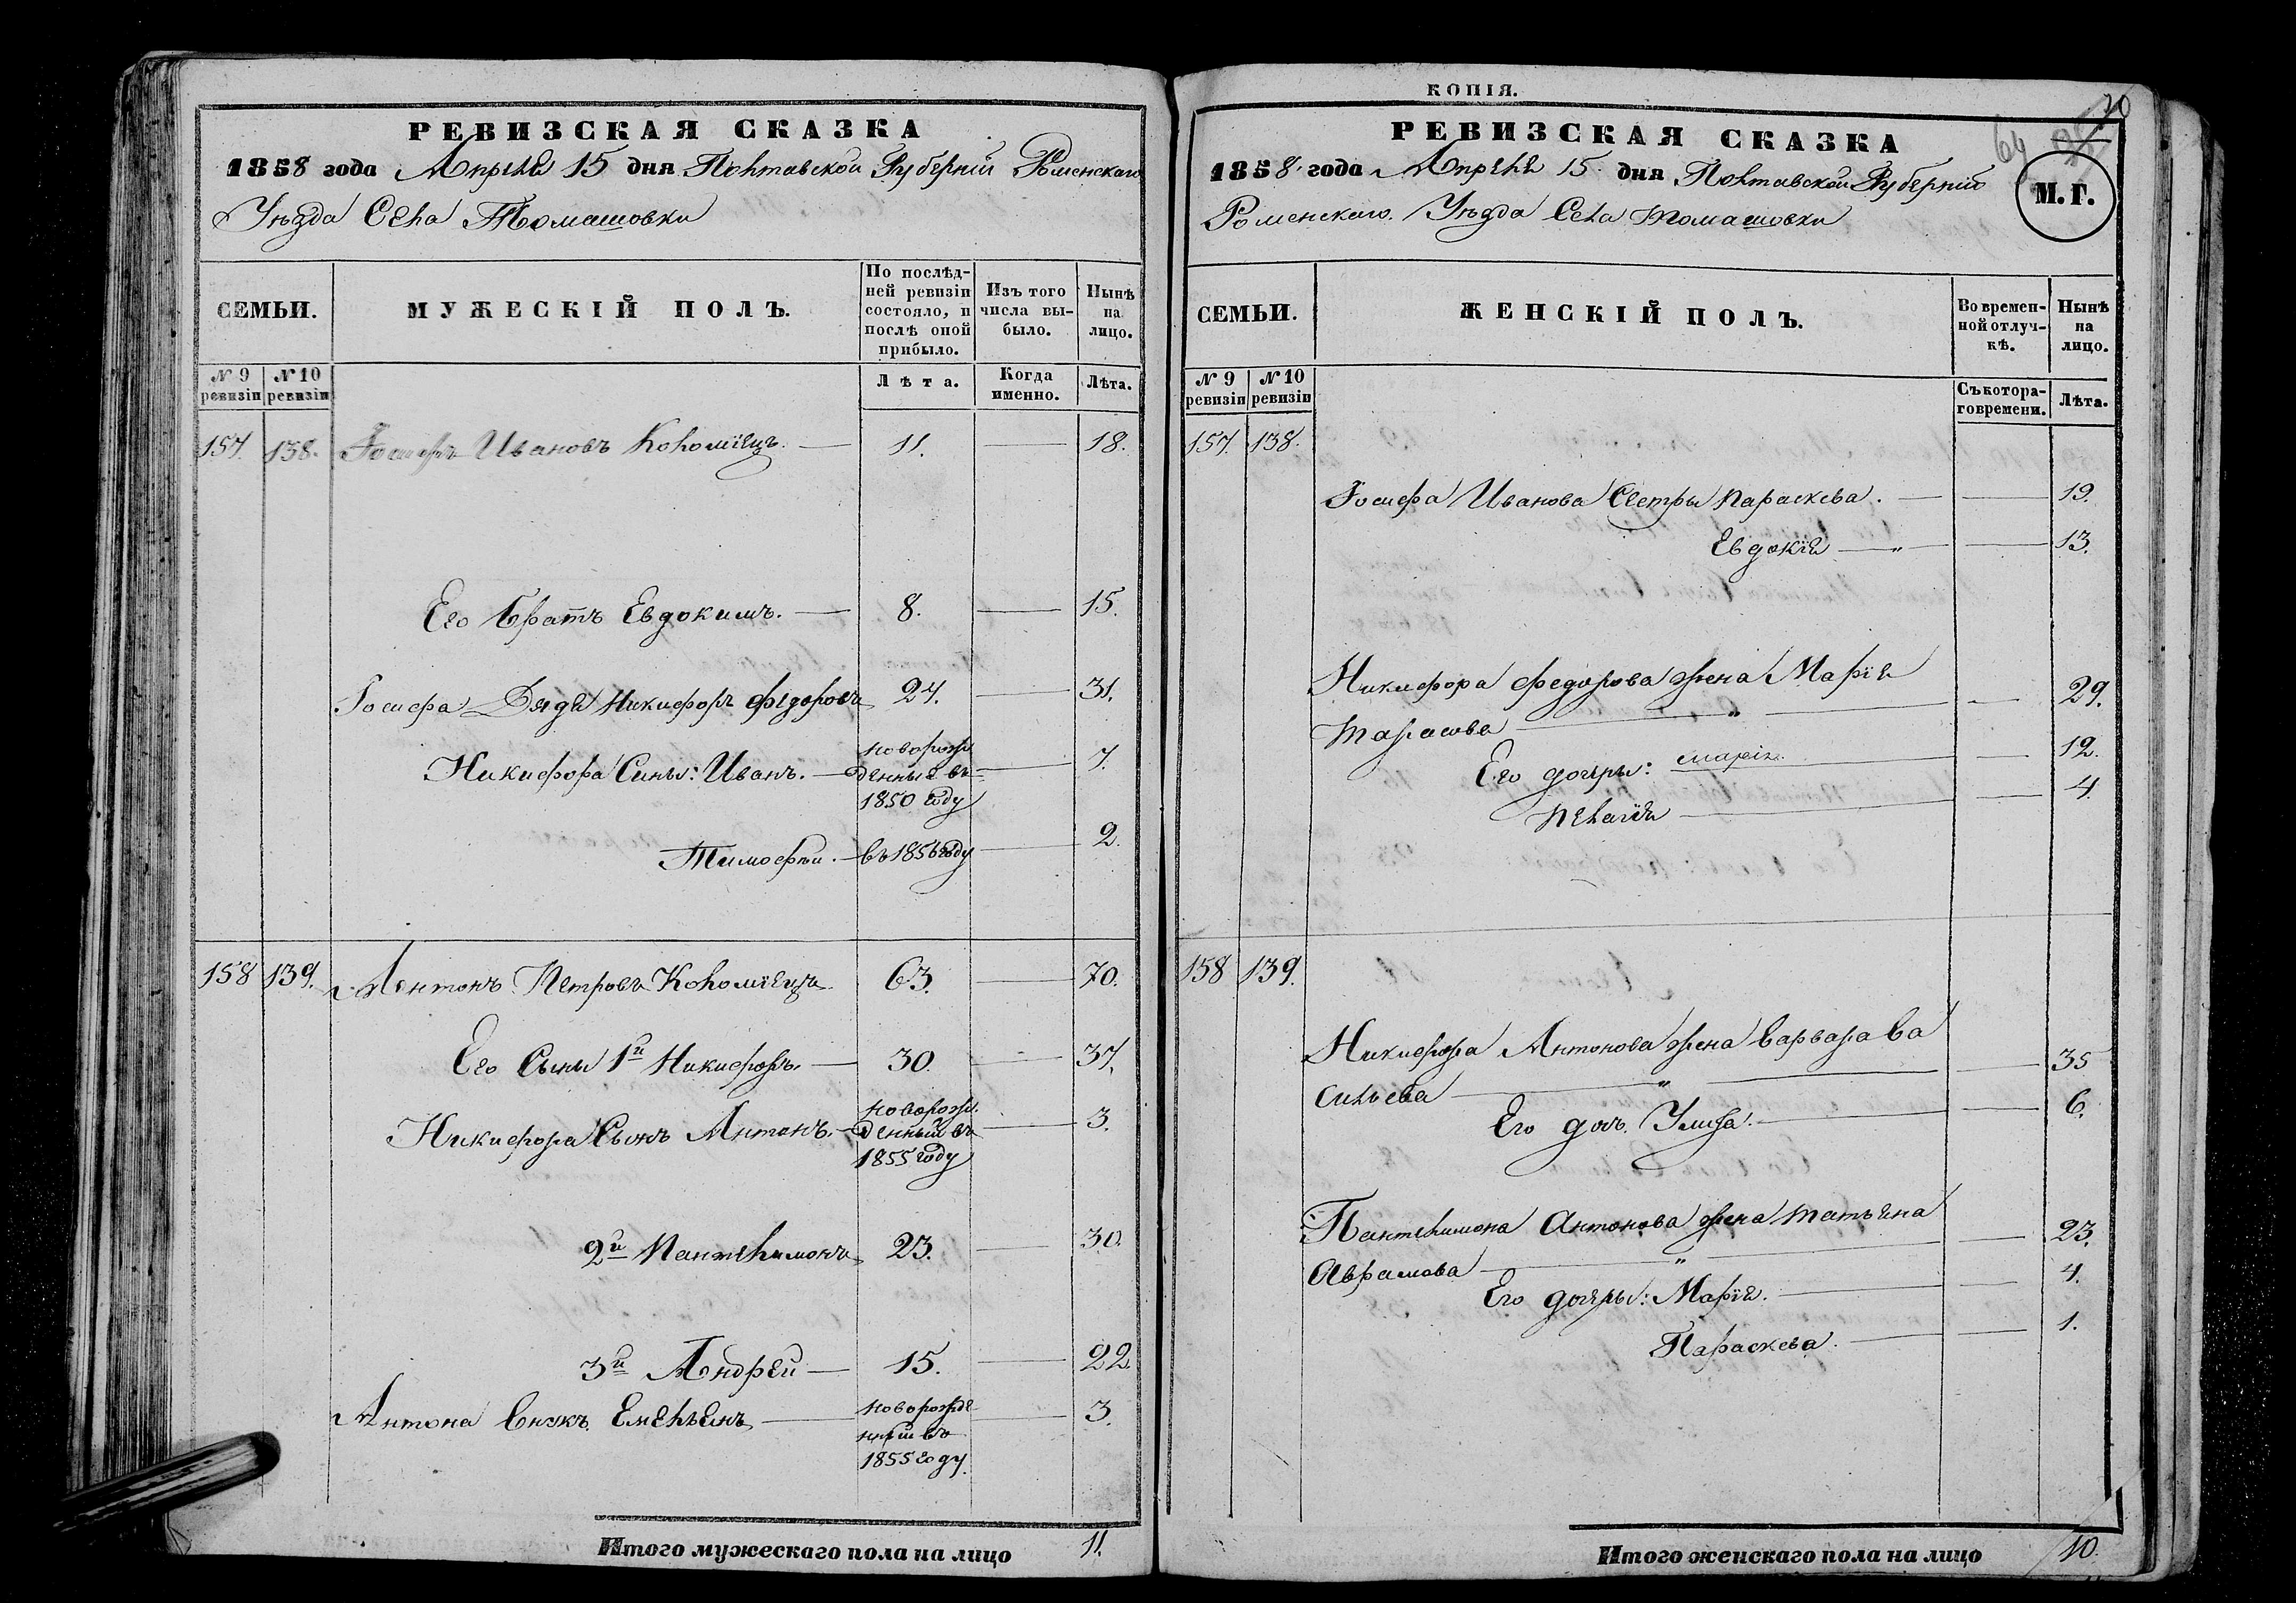 РЕВИЗСКАЯ СКАЗКА
1858 года Апреля 15 дня Полтавской Губерніи Роменскаго
Уѣзда Села Томашовки
СЕМЬИ.
МУЖЕСКІЙ ПОЛЪ.
По послѣд-
ней ревизіи
состояло, и
послѣ оной
прибыло.
Изъ того
числа вы-
было.
Нынѣ
на
лицо.
№ 9
ревизіи
№ 10
ревизіи
Лѣта.
Когда
именно.
Лѣта.
157. 138. Іосифъ Ивановъ Коломіецъ. — 11. — 18.
Его братъ Евдокимъ. — 8. — 15.
Іосифа Дядя Никифоръ Федоровъ 24. — 31.
Никифора Сины: Иванъ. — новорож
денный въ
1850 году — 7.
Тимофѣй. — въ 1856 году — 2.
158 139. Антонъ Петровъ Коломіецъ 63. — 70.
Его Сыны 1й Никифоръ. — 30. — 37.
Никифора Сынъ Антонъ. — новорож.
денный въ
1855 году — 3.
2й Пантелимонъ 23. — 30.
3й Андрей — 15. — 22
Антона внукъ Емельянъ — новорожде
нный въ
1855 году. — 3.
Итого мужескаго пола на лицо 11.
КОПІЯ.
РЕВИЗСКАЯ СКАЗКА
64
70
М.Г.
1858 года Апреля 15 дня Полтавской Губерніи
Роменскаго Уѣзда Села Томашовки
СЕМЬИ.
ЖЕНСКІЙ ПОЛЪ.
Во времен-
ной отлуч-
кѣ.
Нынѣ
на
лицо.
№ 9
ревизіи
№ 10
ревизіи
Съ котора-
го времени.
Лѣта.
157. 138.
Іосифа Иванова Сестры Параскева. — 19.
Евдокія — „ — 13.
Никифора Федорова жена Марія
Тарасова — „ — 29.
Его дочеры: Марія. — 12.
Пелагія — 4.
158 139.
Никифора Антонова жена Варвара Ва
сильева — „ — 35
Его дочь Улита. — 6.
Пантелимона Антонова жена Татьяна
Аврамова — „ — 23.
Его дочеры: Марія. — 4.
Параскева. — 1.
Итого женскаго пола на лицо 10.